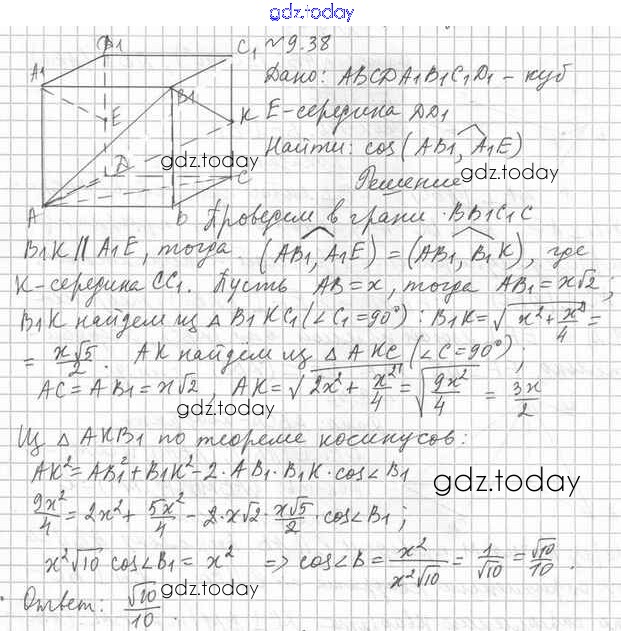 gdz.today
D1
C1 N 9.38
A1
Дано: ABCDA1B1C1D1 - куб
B1
E
K
E-середина DD1
Найти: cos(AB1, A1E)
gdz.today
D
C
gdz.today
Решение
A
B
Проведем в грани BB1C1C
B1K || A1E, тогда (AB1, A1E) = (AB1, B1K), где
K-середина CC1. Пусть AB=x, тогда AB1=x√2;
B1K найдем из △ B1KC1 (∠C1=90°): B1K=√(x²+x²/4)=
= x√5/2. AK найдем из △ AKC (∠C=90°);
AC=AB1=x√2, AK=√(2x²+x²/4)=√(9x²/4) = 3x/2
gdz.today
Из △ AKB1 по теореме косинусов:
AK²=AB1²+B1K²-2·AB1·B1K·cos∠B1
gdz.today
9x²/4=2x²+5x²/4-2·x√2·x√5/2·cos∠B1;
x²√10 cos∠B1= x² => cos∠B= x²/x²√10 = 1/√10 = √10/10.
Ответ: √10/10.
gdz.today